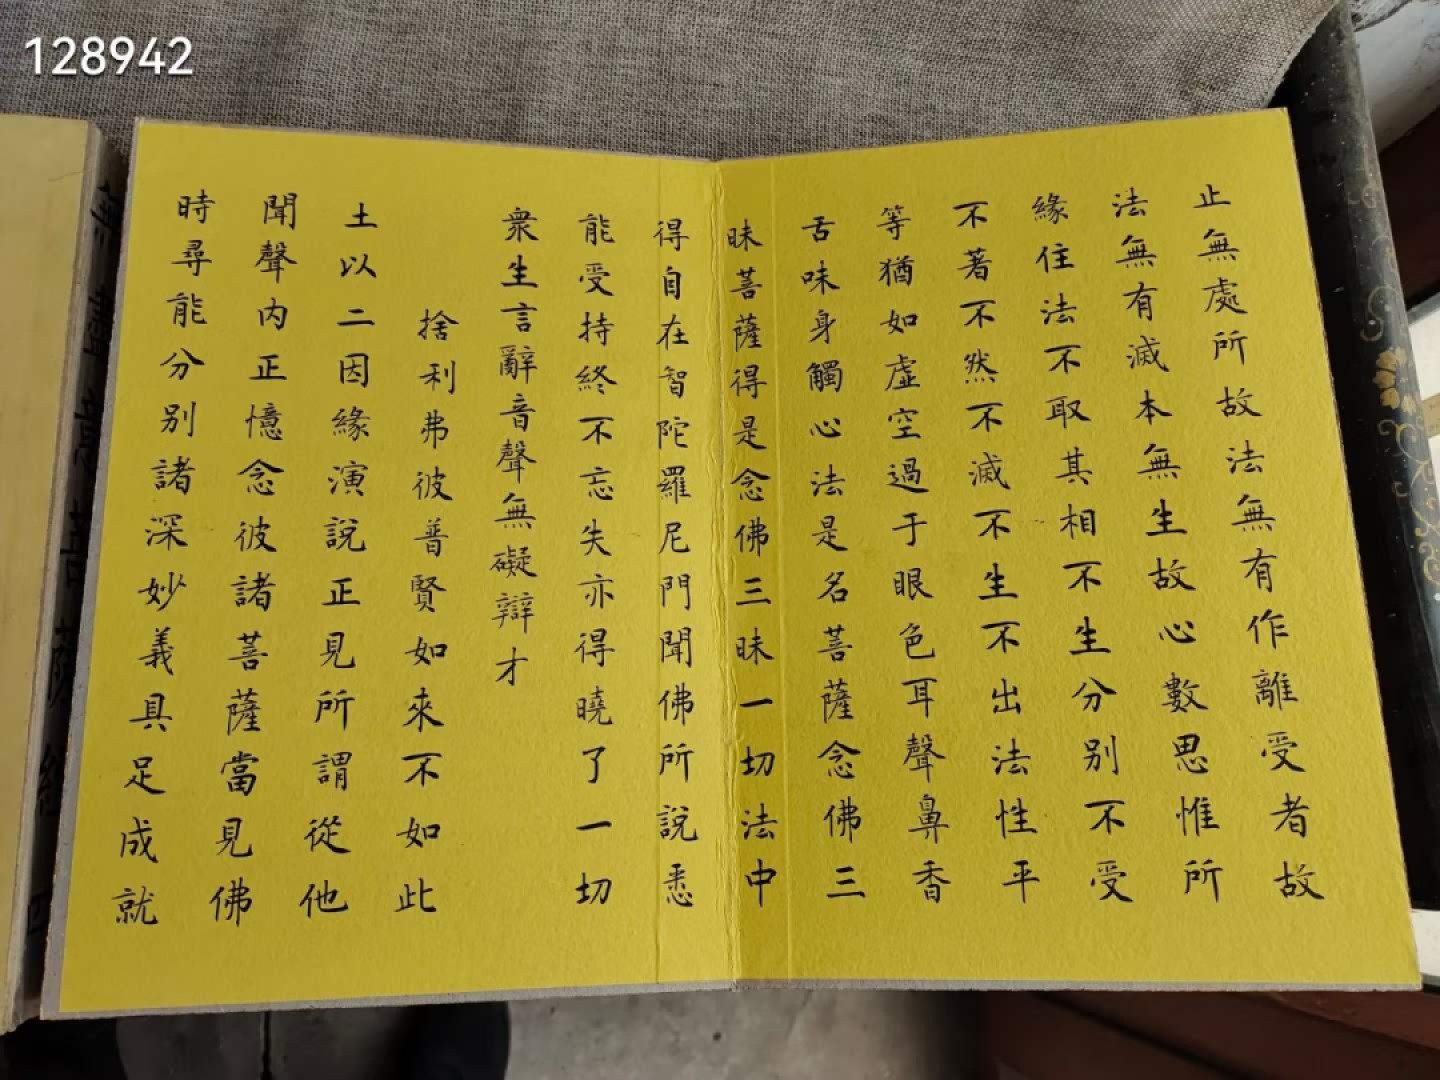 128942
止無處所故法無有作離受者故
法無有滅本無生故心數思惟所
緣住法不取其相不生分別不受
不著不然不滅不生不出法性平
等猶如虛空過于眼色耳聲鼻香
舌味身觸心法是名菩薩念佛三
昧菩薩得是念佛三昧一切法中
得自在智陀羅尼門聞佛所說悉
能受持終不忘失亦得曉了一切
衆生言辭音聲無礙辯才
捨利弗彼普賢如來不如此
土以二因緣演說正見所謂從他
聞聲內正憶念彼諸菩薩當見佛
時尋能分別諸深妙義具足成就